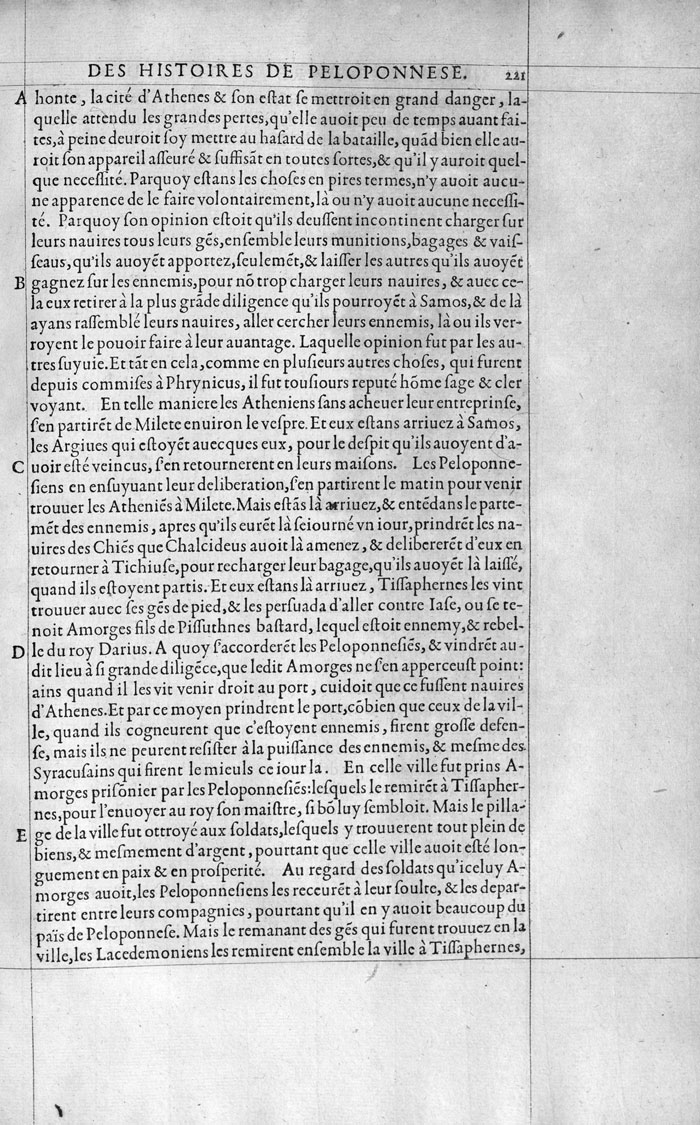 DES HISTOIRES DE PELOPONNESE. 221
A honte, la cité d'Athenes & ſon eſtat ſe mettroit en grand danger, la-
quelle attendu les grandes pertes, qu'elle auoit peu de temps auant fai-
tes, à peine deuroit ſoy mettre au haſard de la bataille, quād bien elle au-
roit ſon appareil aſſeuré & ſuffiſāt en toutes ſortes, & qu'il y auroit quel-
que neceſſité. Parquoy eſtans les choſes en pires termes, n'y auoit aucu-
ne apparence de le faire volontairement, là ou n'y auoit aucune neceſſi-
té. Parquoy ſon opinion eſtoit qu'ils deuſſent incontinent charger ſur
leurs nauires tous leurs gēs, enſemble leurs munitions, bagages & vaiſ-
ſeaus, qu'ils auoyēt apportez, ſeulemēt, & laiſſer les autres qu'ils auoyēt
B gagnez ſur les ennemis, pour nō trop charger leurs nauires, & auec ce-
la eux retirer à la plus grāde diligence qu'ils pourroyēt à Samos, & de là
ayans raſſemblé leurs nauires, aller cercher leurs ennemis, là ou ils ver-
royent le pouoir faire à leur auantage. Laquelle opinion fut par les au-
tres ſuyuie. Et tāt en cela, comme en pluſieurs autres choſes, qui furent
depuis commiſes à Phrynicus, il fut touſiours reputé hōme ſage & cler
voyant. En telle maniere les Atheniens ſans acheuer leur entreprinſe,
ſ'en partirēt de Milete enuiron le veſpre. Et eux eſtans arriuez à Samos,
les Argiues qui eſtoyēt auecques eux, pour le deſpit qu'ils auoyent d'a-
C uoir eſté veincus, ſ'en retournerent en leurs maiſons. Les Peloponne-
ſiens en enſuyuant leur deliberation, ſ'en partirent le matin pour venir
trouuer les Atheniēs à Milete. Mais eſtās là arriuez, & entēdans le parte-
mēt des ennemis, apres qu'ils eurēt là ſeiourné vn iour, prindrēt les na-
uires des Chiēs que Chalcideus auoit là amenez, & delibererēt d'eux en
retourner à Tichiuſe, pour recharger leur bagage, qu'ils auoyēt là laiſſé,
quand ils eſtoyent partis. Et eux eſtans là arriuez, Tiſſaphernes les vint
trouuer auec ſes gēs de pied, & les perſuada d'aller contre Iaſe, ou ſe te-
noit Amorges fils de Piſſuthnes baſtard, lequel eſtoit ennemy, & rebel-
D le du roy Darius. A quoy ſ'accorderēt les Peloponneſiēs, & vindrēt au-
dit lieu à ſi grande diligēce, que ledit Amorges ne ſ'en apperceuſt point:
ains quand il les vit venir droit au port, cuidoit que ce fuſſent nauires
d'Athenes. Et par ce moyen prindrent le port, cōbien que ceux de la vil-
le, quand ils cogneurent que c'eſtoyent ennemis, firent groſſe defen-
ſe, mais ils ne peurent reſiſter à la puiſſance des ennemis, & meſme des
Syracuſains qui firent le mieuls ce iour la. En celle ville fut prins A-
morges priſōnier par les Peloponneſiēs: leſquels le remirēt à Tiſſapher-
nes, pour l'enuoyer au roy ſon maiſtre, ſi bō luy ſembloit. Mais le pilla-
E ge de la ville fut ottroyé aux ſoldats, leſquels y trouuerent tout plein de
biens, & meſmement d'argent, pourtant que celle ville auoit eſté lon-
guement en paix & en proſperité. Au regard des ſoldats qu'iceluy A-
morges auoit, les Peloponneſiens les receurēt à leur ſoulte, & les depar-
tirent entre leurs compagnies, pourtant qu'il en y auoit beaucoup du
païs de Peloponneſe. Mais le remanant des gēs qui furent trouuez en la
ville, les Lacedemoniens les remirent enſemble la ville à Tiſſaphernes,